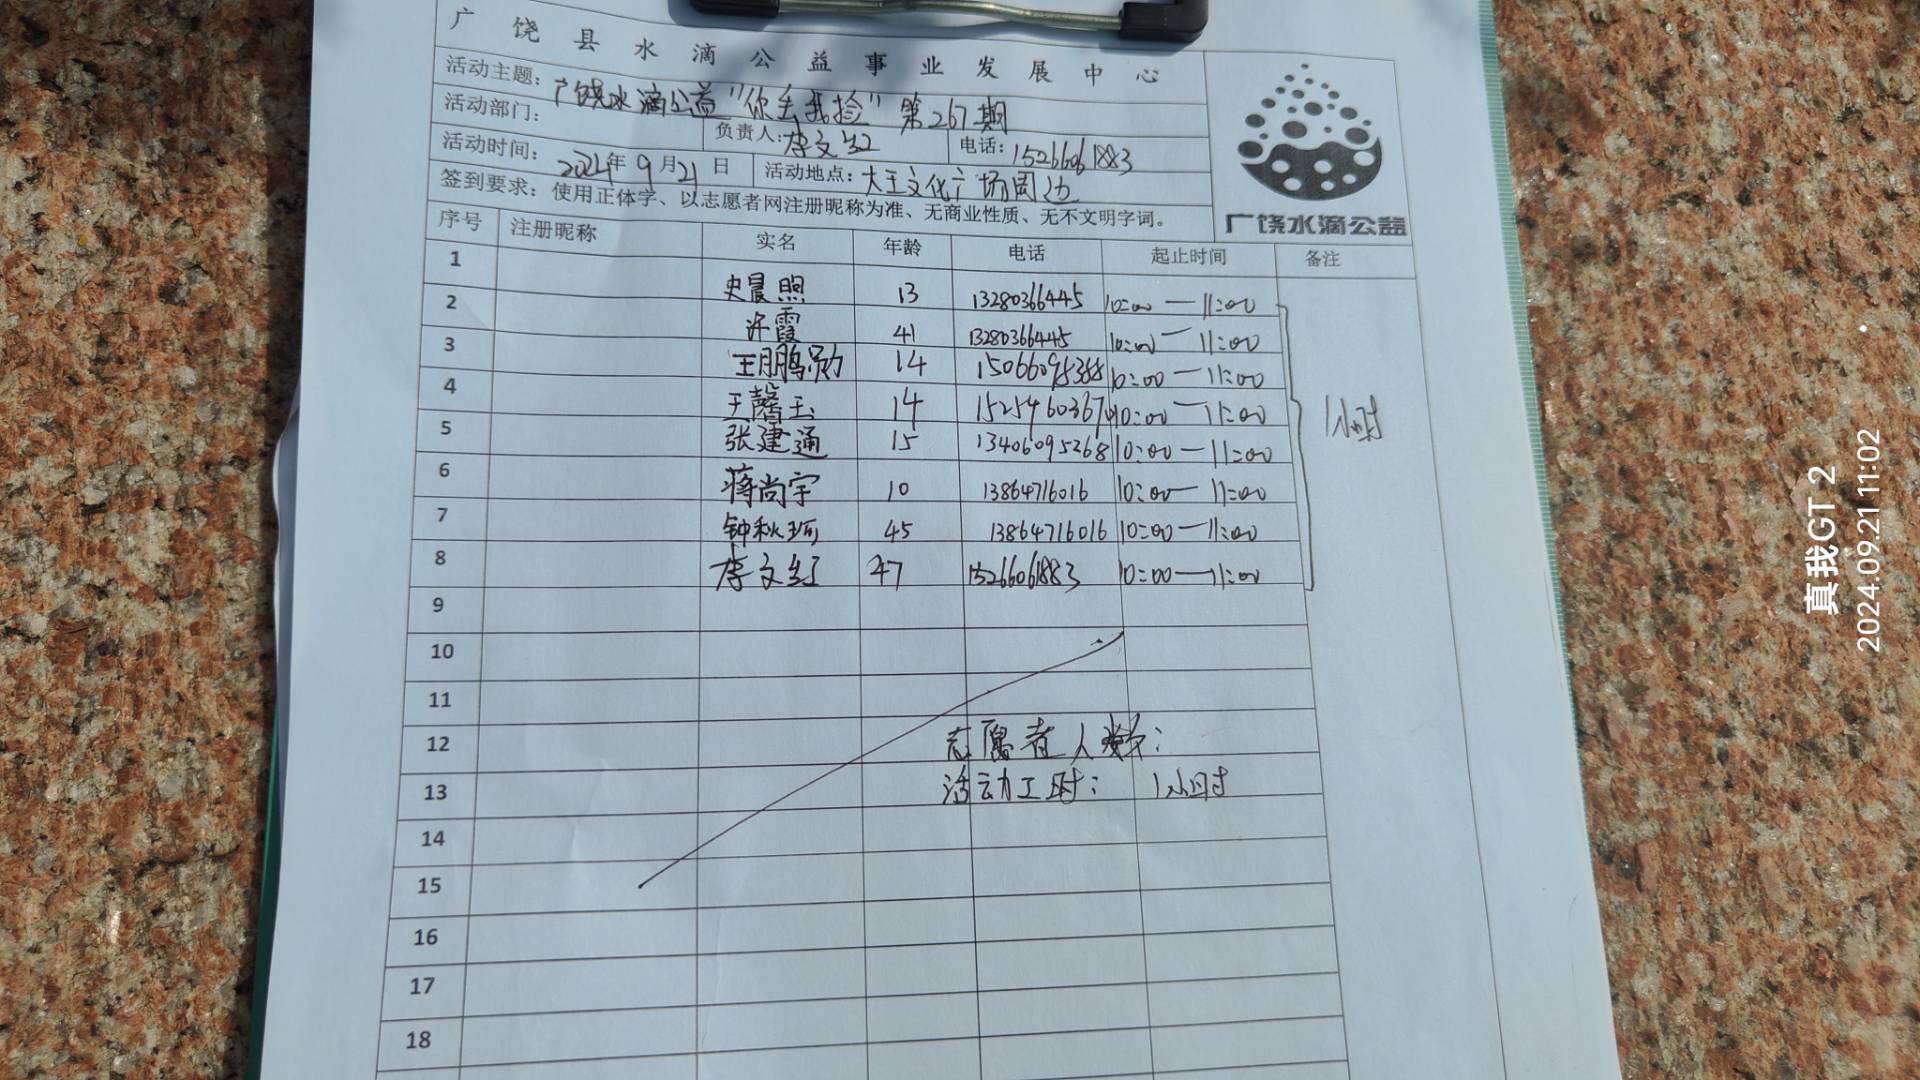 广饶县水滴公益事业发展中心
活动主题：广饶水滴公益"你丢我捡"第267期
活动部门： 负责人：李文红 电话：15266061883
活动时间：2024年9月21日 活动地点：大王文化广场周边
签到要求：使用正体字、以志愿者网注册昵称为准、无商业性质、无不文明字词。
广饶水滴公益
序号 注册昵称 实名 年龄 电话 起止时间 备注
1 史晨煦 13 13280366445 10:00—11:00
2 许霞 41 13280366445 10:00—11:00
3 王鹏勋 14 15066095388 10:00—11:00
4 王馨玉 14 10:00—11:00
5 张建通 15 13406095268 10:00—11:00
6 蒋尚宇 10 13864716016 10:00—11:00
7 钟秋珂 45 13864716016 10:00—11:00
8 李文红 47 15266061883 10:00—11:00
1小时
9
10
11
12 志愿者人数：
13 活动工时：1小时
14
15
16
17
18
真我GT 2
2024.09.21 11:02